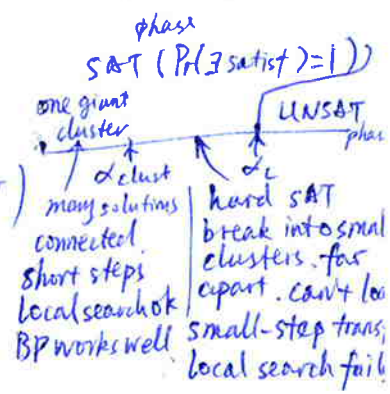 phase
SAT (Pr(∃ satist)=1)
one giant
cluster
UNSAT
phas
α clust
α c
many solutions
connected
short steps
Local search ok
BP works well
hard SAT
break into small
clusters. far
apart. can't loc
small-step trans;
local search fail